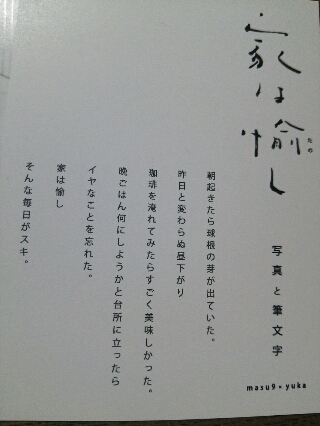 家は愉し
たの
写真と筆文字
masu9×yuka
朝起きたら球根の芽が出ていた。
昨日と変わらぬ昼下がり
珈琲を淹れてみたらすごく美味しかった。
晩ごはん何にしようかと台所に立ったら
イヤなことを忘れた。
家は愉し
そんな毎日がスキ。